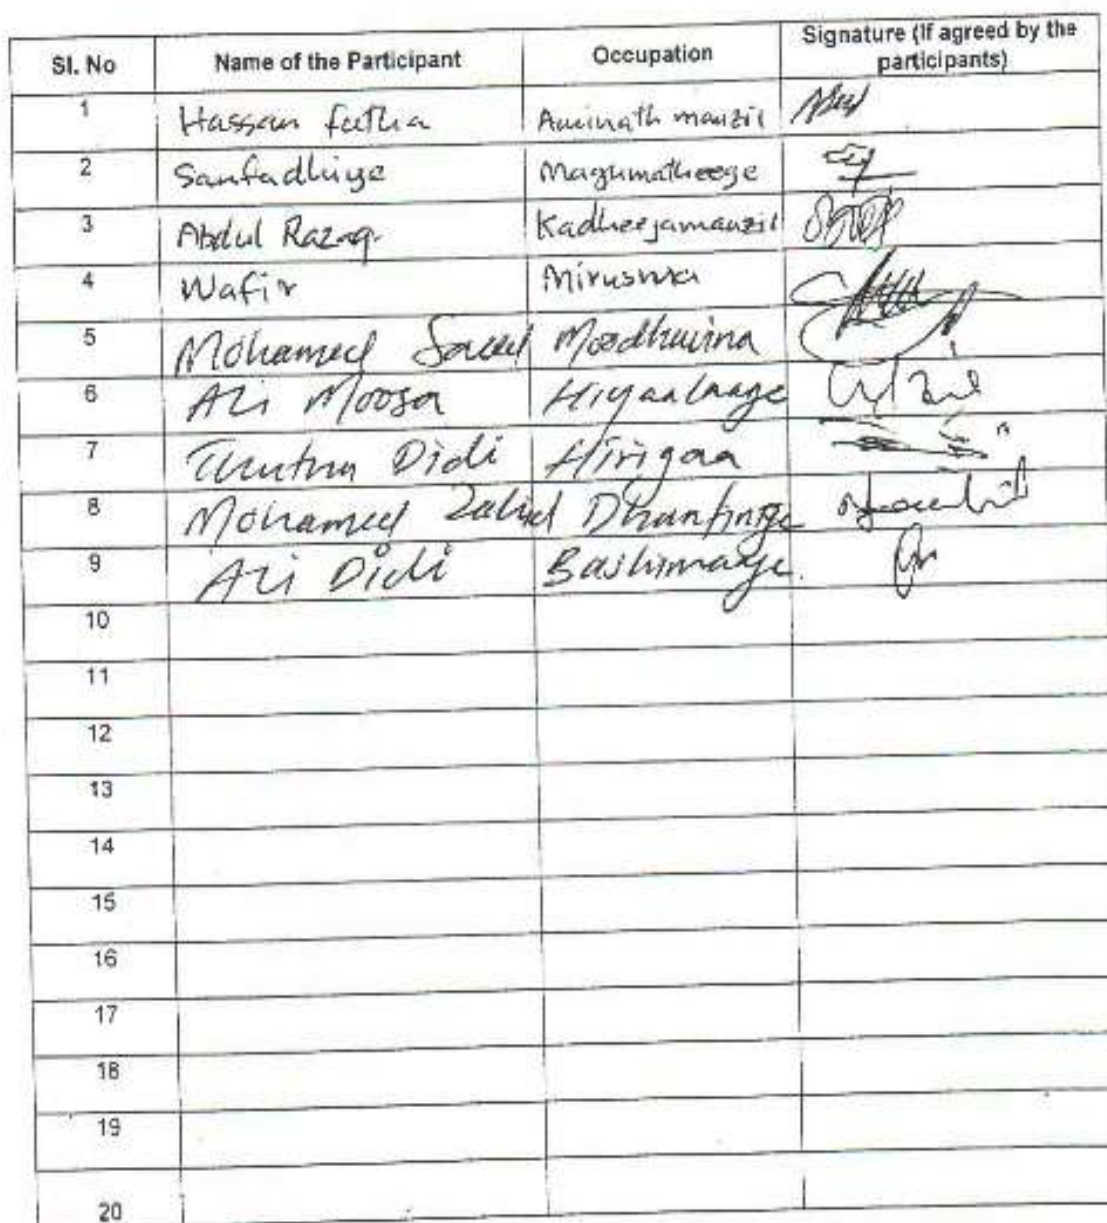 Sl. No Name of the Participant Occupation Signature (If agreed by the participants)
1 Hassan futha Aminath manzil
2 Sanfadhiyge Magumatheege
3 Abdul Razaq Kadheejamanzil
4 Wafir
5 Mohamed Saeed
6 Ali Moosa Hiyaalaage
7 Didi Hirigaa
8 Mohamed Zahid
9 Ali Didi Bashimaage.
10
11
12
13
14
15
16
17
18
19
20